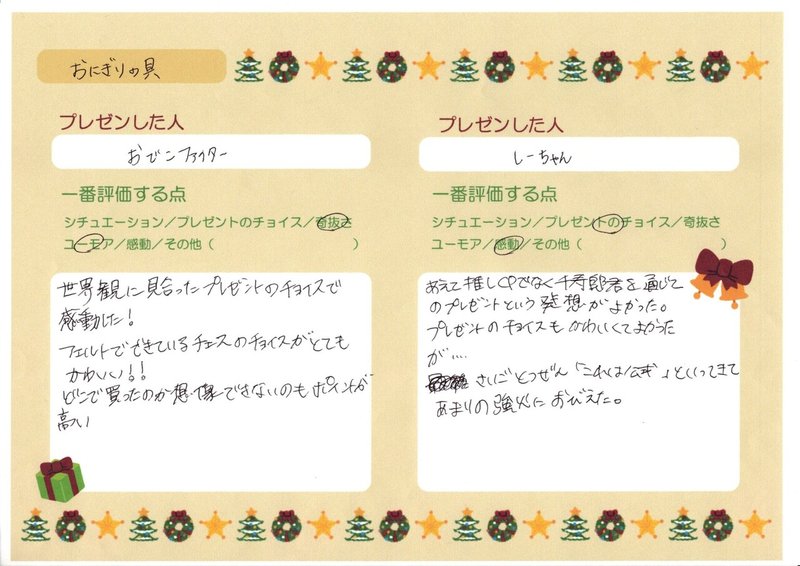 おにぎりの具
プレゼンした人
おでこファイター
一番評価する点
シチュエーション／プレゼントのチョイス／奇抜さ
ユーモア／感動／その他（　　　　　　　　　　）
世界観に見合ったプレゼントのチョイスで
感動した！
フェルトでできているチェスのチョイスがとても
かわいい！！
どこで買ったのか想像できないのもポイントが
高い
プレゼンした人
しーちゃん
一番評価する点
シチュエーション／プレゼントのチョイス／奇抜さ
ユーモア／感動／その他（　　　　　　　　　　）
あえて推しCPでなく千寿郎君を通じて
のプレゼントという発想がよかった。
プレゼントのチョイスもかわいくてよかった
が…
さいごとつぜん「これは公式」といってきて
あまりの強火におびえた。